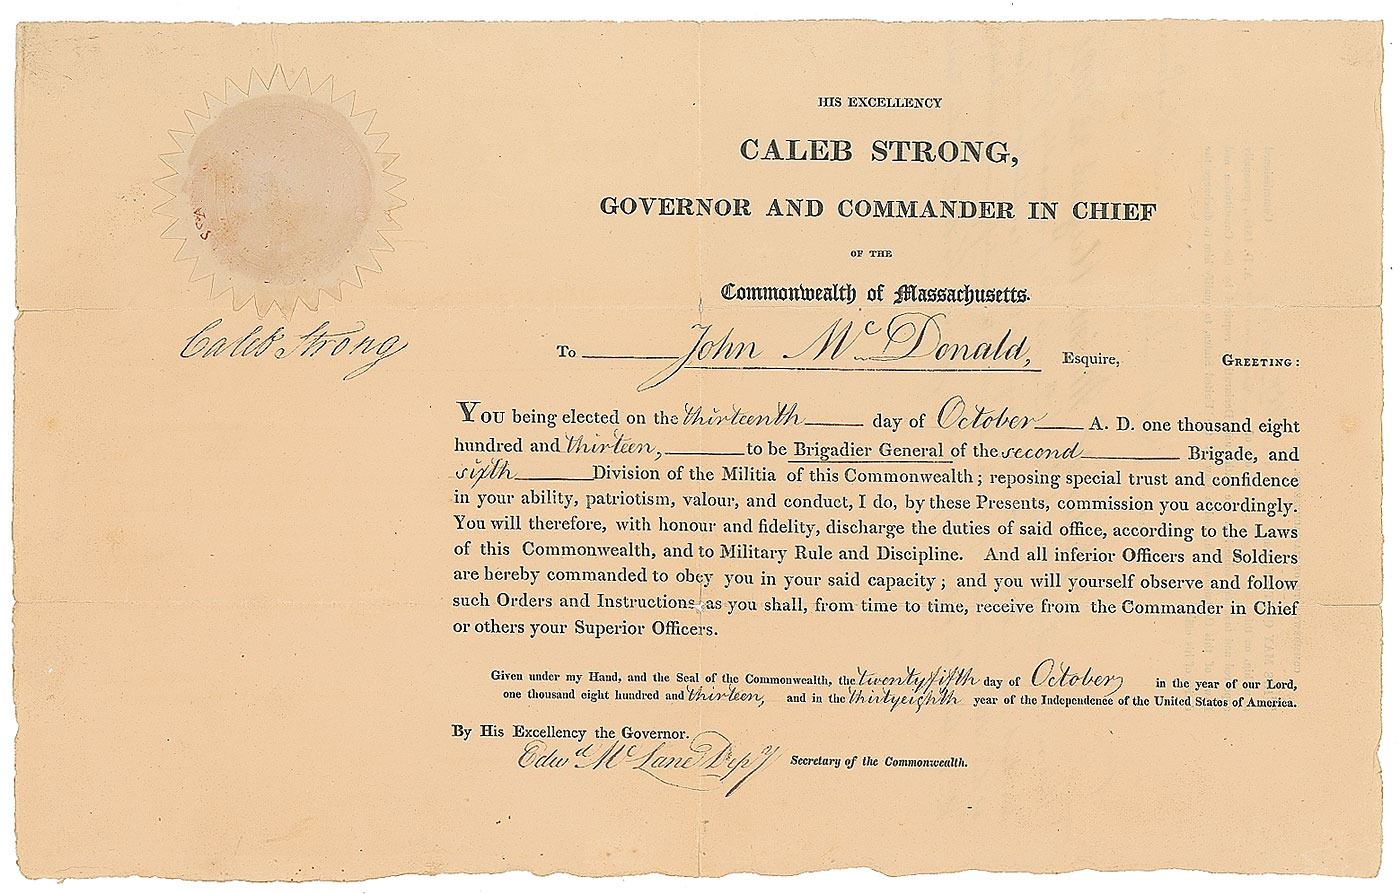 HIS EXCELLENCY
CALEB STRONG,
GOVERNOR AND COMMANDER IN CHIEF
OF THE
Commonwealth of Massachusetts.
Caleb Strong
To John Mc Donald, Esquire, GREETING:
YOU being elected on the thirteenth day of October A. D. one thousand eight
hundred and thirteen, to be Brigadier General of the second Brigade, and
sixth Division of the Militia of this Commonwealth; reposing special trust and confidence
in your ability, patriotism, valour, and conduct, I do, by these Presents, commission you accordingly.
You will therefore, with honour and fidelity, discharge the duties of said office, according to the Laws
of this Commonwealth, and to Military Rule and Discipline. And all inferior Officers and Soldiers
are hereby commanded to obey you in your said capacity; and you will yourself observe and follow
such Orders and Instructions as you shall, from time to time, receive from the Commander in Chief
or others your Superior Officers.
Given under my Hand, and the Seal of the Commonwealth, the twenty fifth day of October, in the year of our Lord,
one thousand eight hundred and thirteen, and in the thirtyeighth year of the Independence of the United States of America.
By His Excellency the Governor.
Edwd Mc Lane Depy Secretary of the Commonwealth.